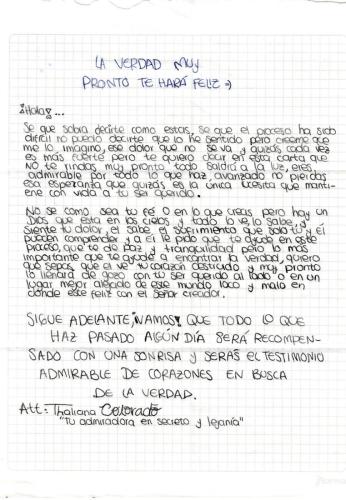 LA VERDAD MUY
PRONTO TE HARÁ FELIZ :)
¡Hola!...
Se que sobra decirte como estas, se que el proceso ha sido
dificil no puedo decirte que lo he sentido pero creeme que
me lo imagino, ese dolor que no se va y quizás cada vez
es más fuerte pero te quiero decir en esta carta que
NO te rindas muy pronto todo saldrá a la luz, eres
admirable por todo lo que haz avanzado no pierdas
esa esperanza que quizás es la única lucesita que manti-
ene con vida a tu ser querido.
NO se como sea tu fé o en lo que creas pero hay un
Dios que esta en los cielos y todo lo ve, lo sabe y
siente tu dolor, el sabe el sufrimiento que solo tu y el
pueden comprender y a el le pido que te ayude en este
proceso, que te de Paz y tranquilidad pero lo más
importante que te ayude a encontrar la verdad, quiero
que sepas que el ve tu corazón destruido y muy pronto
lo llenará de gozo con tu ser querido al lado o en un
lugar mejor alejado de este mundo loco y malo en
donde este feliz con el señor creador.
SIGUE ADELANTE ¡VAMOS! QUE TODO LO QUE
HAZ PASADO ALGÚN DÍA SERÁ RECOMPEN-
SADO CON UNA SONRISA Y SERÁS EL TESTIMONIO
ADMIRABLE DE CORAZONES EN BUSCA
DE LA VERDAD.
Att: Thaliana Colorado
"Tu admiradora en secreto y lejanía"